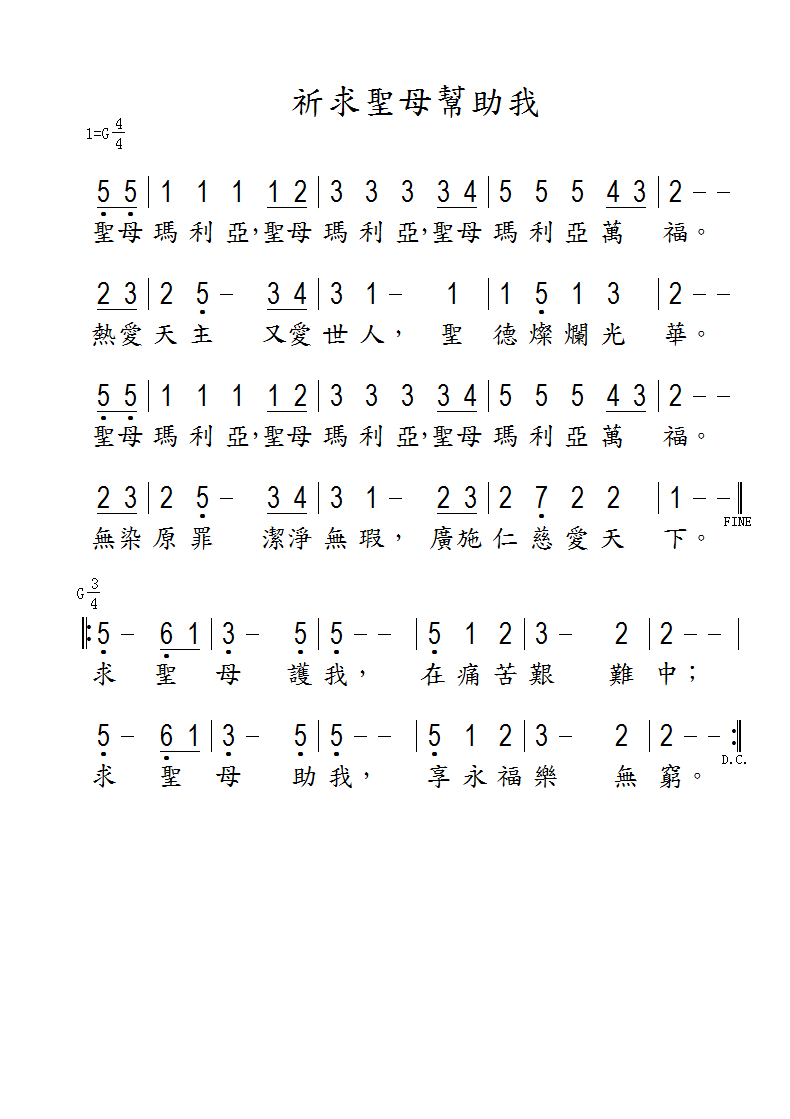 祈求聖母幫助我
1=G 4/4
5 5 | 1 1 1 1 2 | 3 3 3 3 4 | 5 5 5 4 3 | 2 – –
聖母瑪利亞,聖母瑪利亞,聖母瑪利亞萬 福。
2 3 | 2 5 – 3 4 | 3 1 – 1 | 1 5 1 3 | 2 – –
熱愛天主 又愛世人, 聖 德燦爛光 華。
5 5 | 1 1 1 1 2 | 3 3 3 3 4 | 5 5 5 4 3 | 2 – –
聖母瑪利亞,聖母瑪利亞,聖母瑪利亞萬 福。
2 3 | 2 5 – 3 4 | 3 1 – 2 3 | 2 7 2 2 | 1 – –
FINE
無染原罪 潔淨無瑕, 廣施仁慈愛天 下。
G 3/4
5 – 6 1 | 3 – 5 | 5 – – | 5 1 2 | 3 – 2 | 2 – – |
求 聖 母 護我, 在痛苦艱 難中;
5 – 6 1 | 3 – 5 | 5 – – | 5 1 2 | 3 – 2 | 2 – –
D.C.
求 聖 母 助我, 享永福樂 無窮。